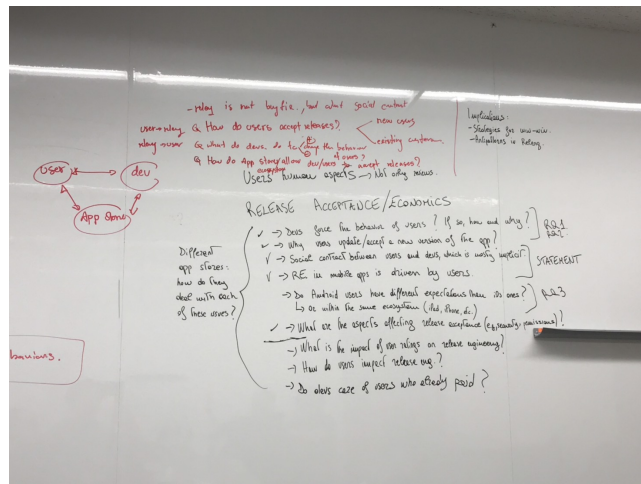 - releng is not bug fix., but about social contract
user→releng Q How do users accept releases?
new users
existing customers
releng→user Q what do devs. do to change the behavior of users?
Q How do App stores allow dev/users to accept releases?
ecosystem
Users human aspects → Not only reviews.
Implications:
- Strategies for win-win.
- Antipatterns in Releng.
user
dev
App Store
RELEASE ACCEPTANCE/ECONOMICS
✓ → Devs force the behavior of users? If so, how and why?
✓ → Why users update/accept a new version of the app?
RQ1
RQ2
✓ → Social contract between users and devs, which is mostly implicit.
✓ → RE in mobile apps is driven by users.
STATEMENT
→ Do Android users have different expectations than ios ones?
↳ Or within the same ecosystem (iPad, iPhone, etc.)
RQ3
✓ → What are the aspects affecting release acceptance (e.g., security, permissions)?
→ What is the impact of user ratings on release engineering?
→ How do users impact release eng.?
→ Do devs care of users who already paid?
Different
app stores:
how do they
deal with each
of these issues?